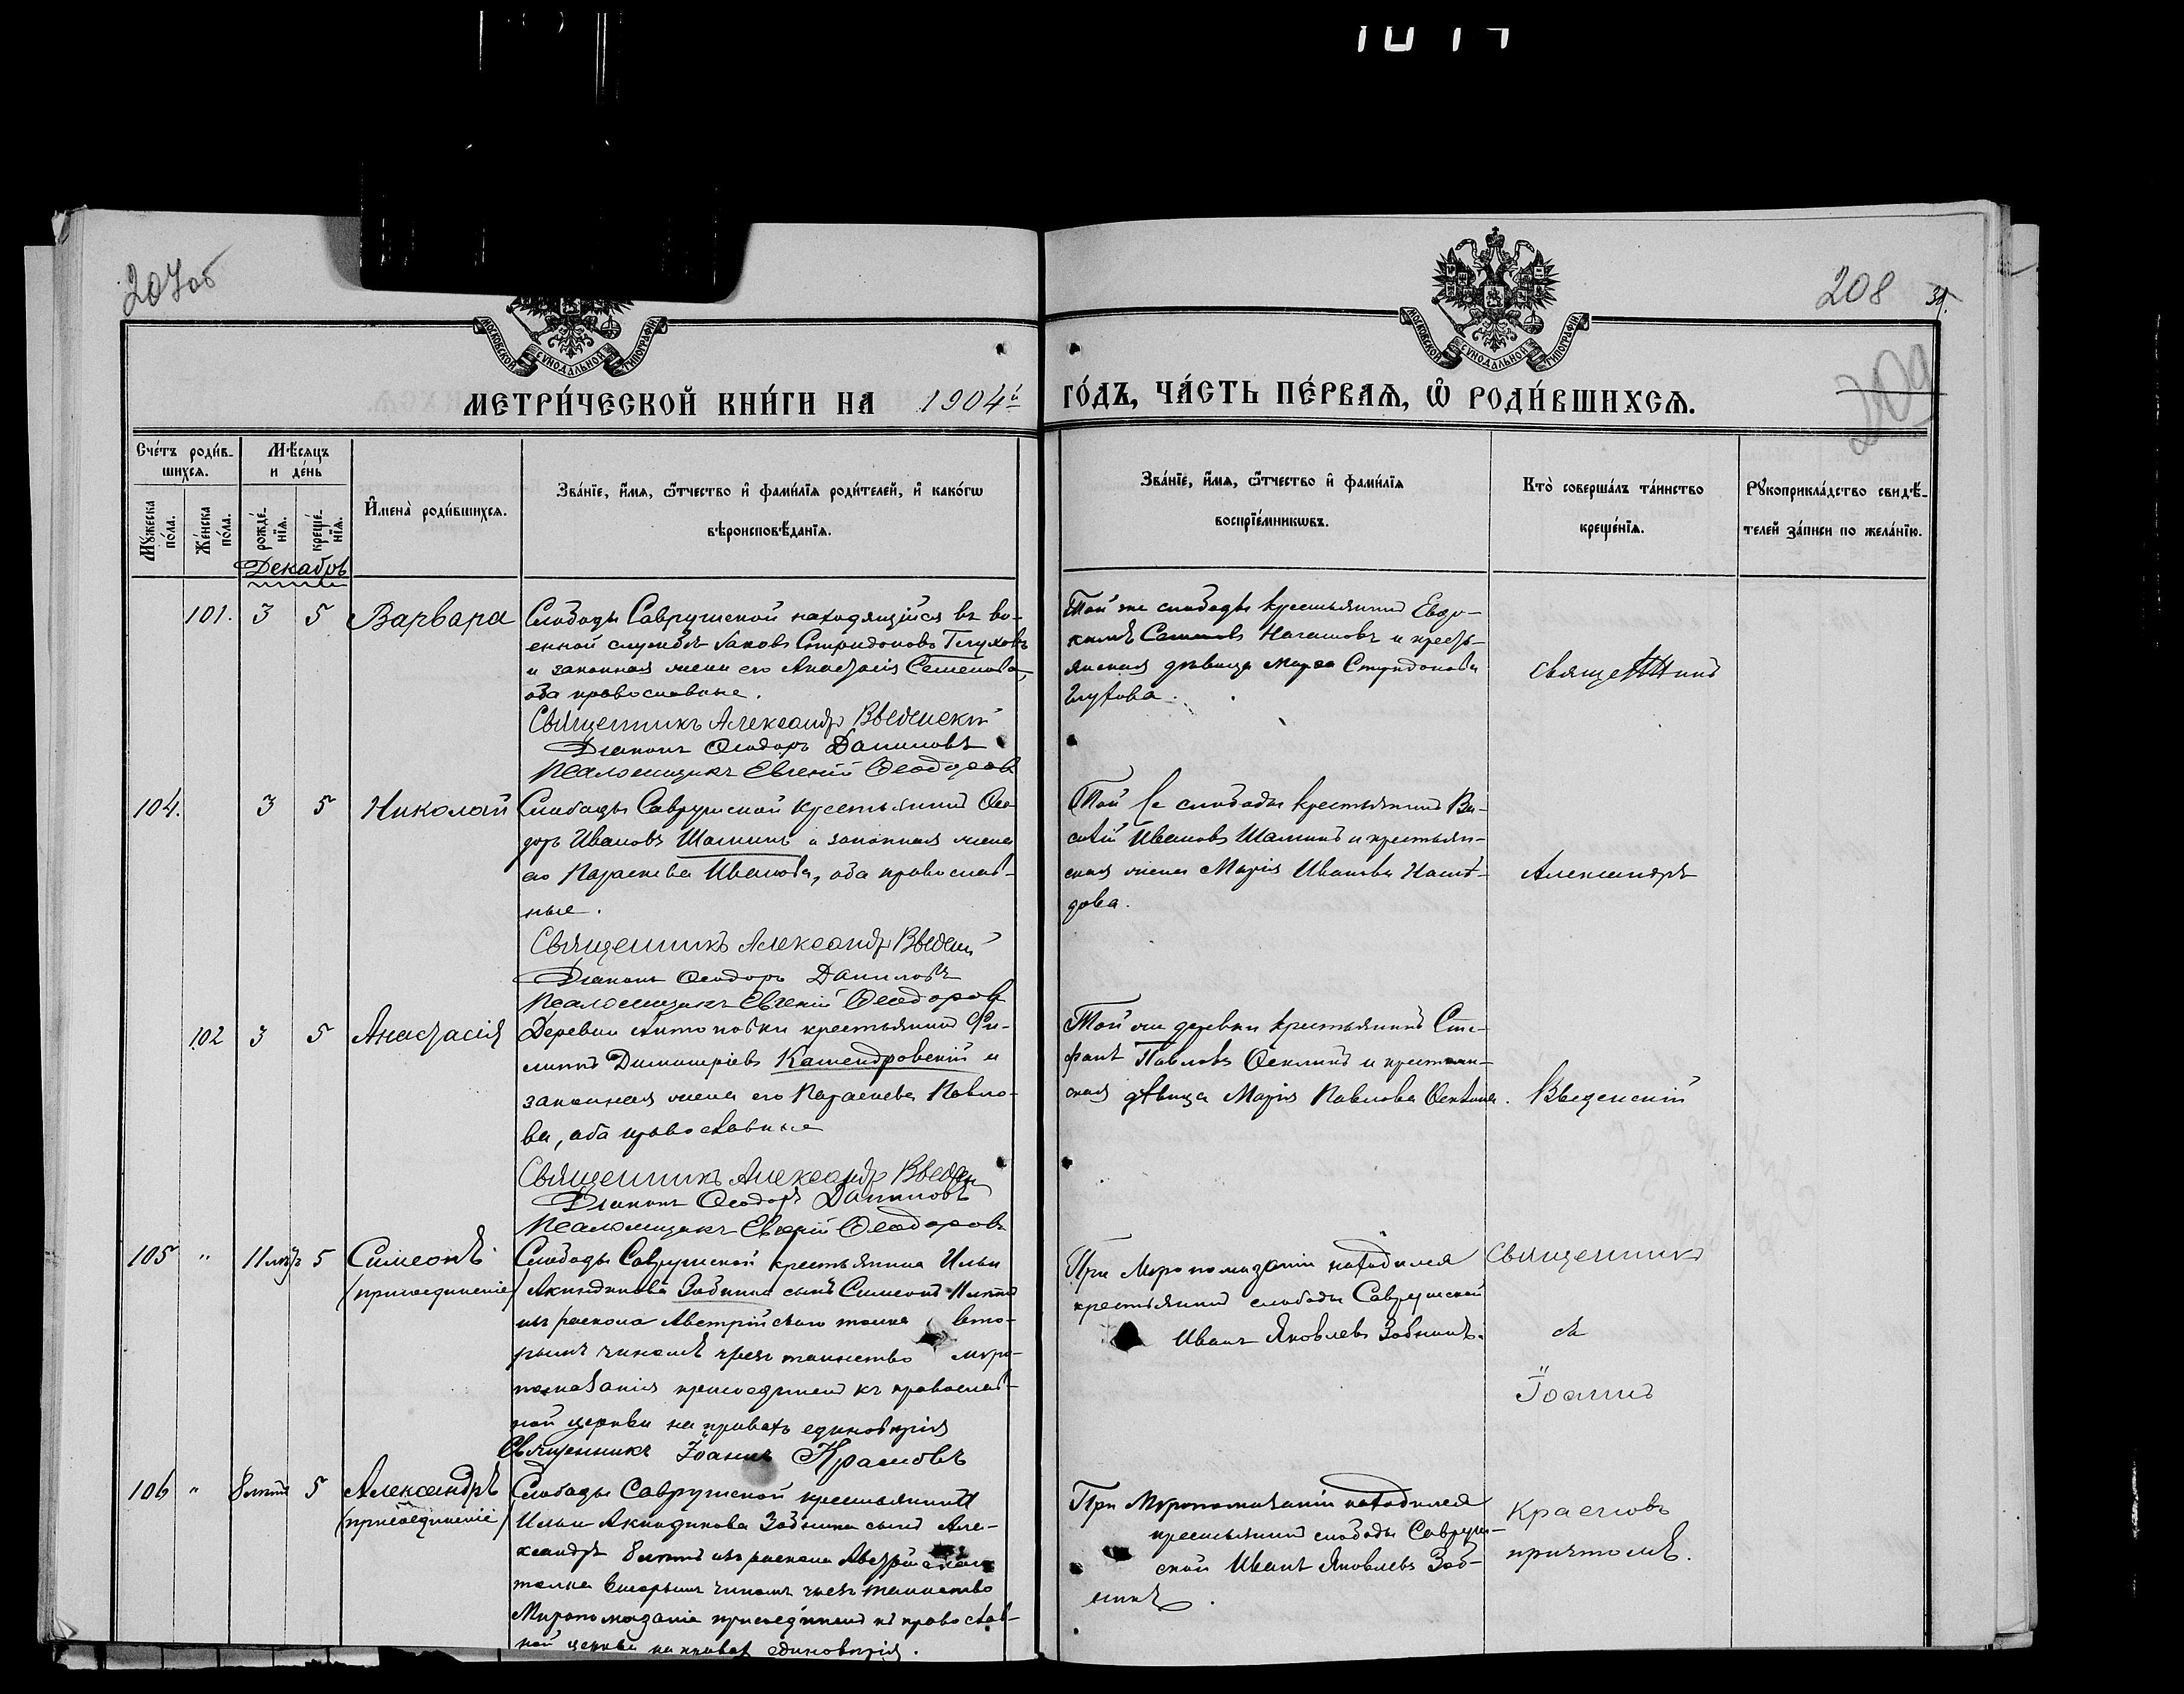 1014
207об
208
34.
209
МОСКОВСКОЙ СѴНОДАЛЬНОЙ ТИПОГРАФІИ
МОСКОВСКОЙ СѴНОДАЛЬНОЙ ТИПОГРАФІИ
МЕТРИ́ЧЕСКОЙ КНИ́ГИ НА 1904й ГО́ДЪ, ЧА́СТЬ ПЕ́РВАѦ, Ѡ҆ РОДИ́ВШИХСѦ.
Сче́тъ роди́в-
шихсѧ.
Мѣ́сѧцъ
и де́нь
Мꙋ́жеска по́ла.
Же́нска по́ла.
рожде́-нїѧ.
креще́-нїѧ.
И҆мена̀ роди́вшихсѧ.
Зва́нїе, и҆́мѧ, ѻ҆́тчество и҆ фами́лїѧ роди́телей, и҆ како́гѡ
вѣроисповѣ́данїѧ.
Зва́нїе, и҆́мѧ, ѻ҆́тчество и҆ фами́лїѧ
воспрїе́мникѡвъ.
Кто̀ соверша́лъ та́инство
креще́нїѧ.
Рꙋкоприкла́дство свидѣ́-
телей за́писи по жела́нїю.
Декабрь
101. 3 5 Варвара
Слободы Саврушской находящійся въ во-
енной службѣ Іаковъ Спиридоновъ Глуховъ
и законная жена его Анастасія Семенова,
оба православные.
Священникъ Александръ Введенскій
Діаконъ Ѳеодоръ Даниловъ
Псаломщикъ Евгеній Ѳеодоровъ
Той же слободы крестьянинъ Евдо-
кимъ Нагашовъ и кресть-
янская дѣвица Марѳа Спиридонова
Глухова.
Священникъ
104. 3 5 Николай
Слободы Саврушской крестьянинъ Ѳео-
доръ Ивановъ Шаминъ и законная жена
его Параскева Иванова, оба православ-
ные.
Священникъ Александръ Введен
Діаконъ Ѳеодоръ Даниловъ
Псаломщикъ Евгеній Ѳеодоровъ
Той же слободы крестьянинъ Ва-
силій Ивановъ Шаминъ и крестьян-
ская жена Марія Иванова
дова.
Александръ
102 3 5 Анастасія
Деревни Антоновки крестьянинъ Фи-
липпъ Димитріевъ Камендровскій и
законная жена его Параскева Павло-
ва, оба православные
Священникъ Александръ Введен
Діаконъ Ѳеодоръ Даниловъ
Псаломщикъ Евгеній Ѳеодоровъ
Той же деревни крестьянинъ Сте-
фанъ Павловъ и крестьян-
ская дѣвица Марія Павлова
Введенскій
105 " 11 лѣтъ 5 Симеонъ
/присоединеніе/
Слободы Саврушской крестьянина Ильи
Акиндинова Зобнина сынъ Симеонъ 11 лѣтъ
изъ раскола Австрійскаго толка вто-
рымъ чиномъ чрезъ таинство мѵро-
помазанія присоединенъ къ православ-
ной церкви на правахъ единовѣрія
Священникъ Іоаннъ Красновъ
При Мѵропомазаніи находился
крестьянинъ слободы Саврушской
Иванъ Яковлевъ Зобнинъ.
Священникъ
Іоаннъ
106 " 8 лѣтъ 5 Александръ
/присоединеніе/
Слободы Саврушской крестьянина
Ильи Акиндинова Зобнина сынъ Але-
ксандръ 8 лѣтъ изъ раскола Австрійскаго
толка вторымъ чиномъ чрезъ таинство
Мѵропомазанія присоединенъ къ православ-
ной церкви на правахъ единовѣрія.
При Мѵропомазаніи находился
крестьянинъ слободы Савруш-
ской Иванъ Яковлевъ Зоб-
нинъ.
Красновъ
причтомъ.